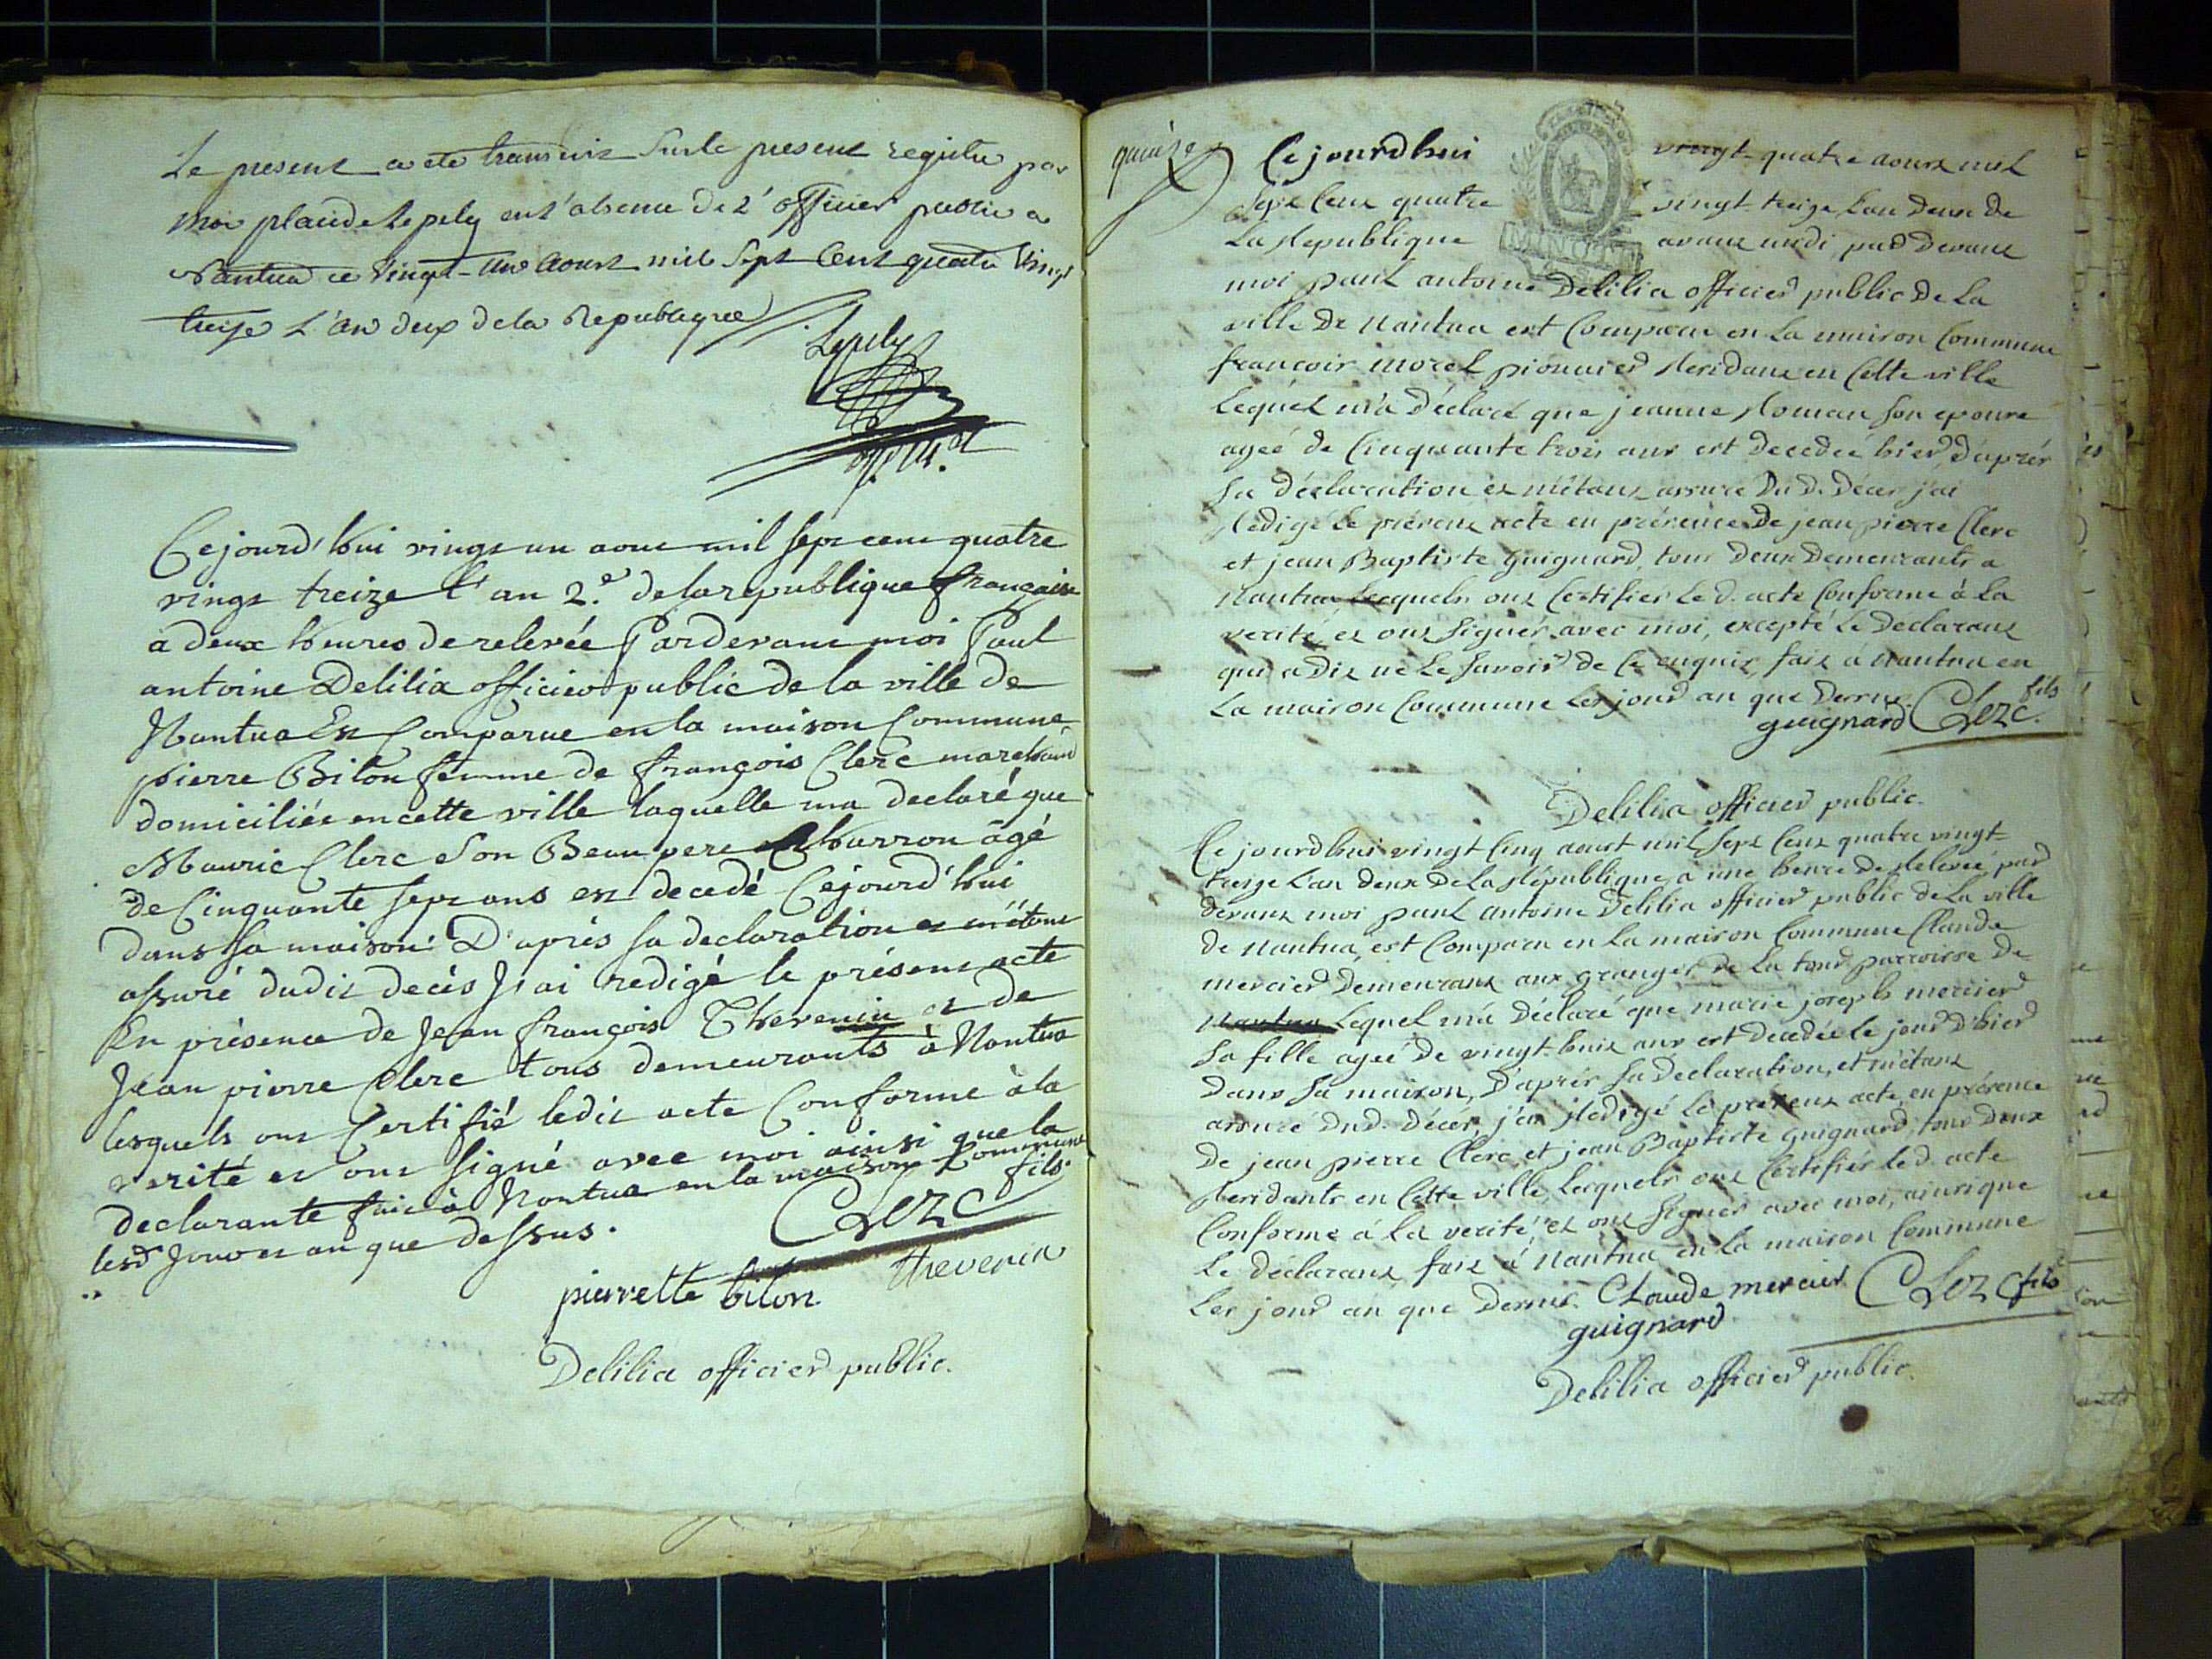 Le present a ete transcris Sur le present registre par
moi placide Lepely en l'absence De L' officier public a
Nantua ce vingt-un Aoust mil Sept Cent quatre Vingt
treise L'An deux de la Republique
Lepely
Cejourd'hui vingt un aout mil sept cent quatre
vingt treize l'an 2.e de la republique française
à deux heures de relevée Pardevant moi Paul
antoine Delilia officier public de la ville de
Nantua Est Comparue en la maison Commune
pierre Bilon femme de françois Clerc marchand
domiciliée en cette ville laquelle ma declaré que
Mauric Clerc son Beau pere Charron âgé
de Cinquante sept ans est decedé Cejourd'hui
dans sa maison. D'après sa declaration et m'étant
assuré dudit decès J'ai redigé le présent acte
En présence de Jean françois Thevenin et de
Jean pierre Clerc tous demeurants à Nantua
lesquels ont Certifié ledit acte Conforme à la
verité et ont signé avec moi ainsi que la
declarante fait à Nantua en la maison Commune
lesd Jour et an que dessus.
Clerc fils
pierrette bilon thevenin
Delilia officier public.
quinze
Ce jourdhui vingt-quatre aoust mil
Sept Cent quatre vingt-treize L'an Deux de
La Republique avant midi, par Devant
MINUTE
moi paul antoine Delilia officier public De La
ville De Nantua est Comparu en La maison Commune
francois morel pionnier Residant en Cette ville
Lequel m'a Déclaré que jeanne Roman Son epouse
ageé de Cinquante trois ans est Decedeé hier, d'après
Sa déclaration et m'étant assuré Du d. Décès j'ai
Redigé Le présent acte en présence de jean pierre Clerc
et jean Baptiste Guignard, tous Deux Demeurants a
Nantua Lesquels ont Certifiés Le d. acte Conforme à La
verité et ont Signés avec moi, excepté Le Declarant
qui a Dit ne Le Savoir de Ce enquis, fait à Nantua en
La maison Commune Les jour an que Dessus.
guignard Clerc fils
Delilia officier public.
Ce jourdhui vingt Cinq aoust mil Sept Cent quatre vingt-
treize L'an Deux De La République, a une heure De Relevée, par
devant moi paul Antoine Delilia officier public De La ville
de Nantua, est Comparu en La maison Commune Claude
mercier Demeurant aux granges de La tour parroisse De
Nantua Lequel m'a Déclaré que marie joseph mercier
Sa fille ageé De vingt-huit ans est Decedée Le jour D'hier
Dans Sa maison, D'après Sa Declaration, et m'étant
assuré Dud. Décès, j'ai Redigé Le présent acte, en présence
De jean pierre Clerc, et jean Baptiste Guignard, tous Deux
Residants en Cette ville, Lesquels ont Certifiés Le d. acte
Conforme à La verité, et ont Signés avec moi, ainsi que
Le déclarant, fait à Nantua en La maison Commune
Les jour an que Dessus. Claude mercier Clerc fils
guignard
Delilia officier public.